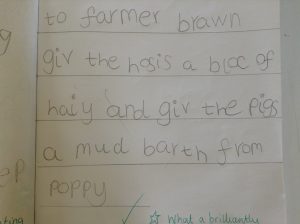 to farmer brawn
giv the hosis a bloc of
haiy and giv the pigs
a mud barth from
poppy
☆ What a brilliantly